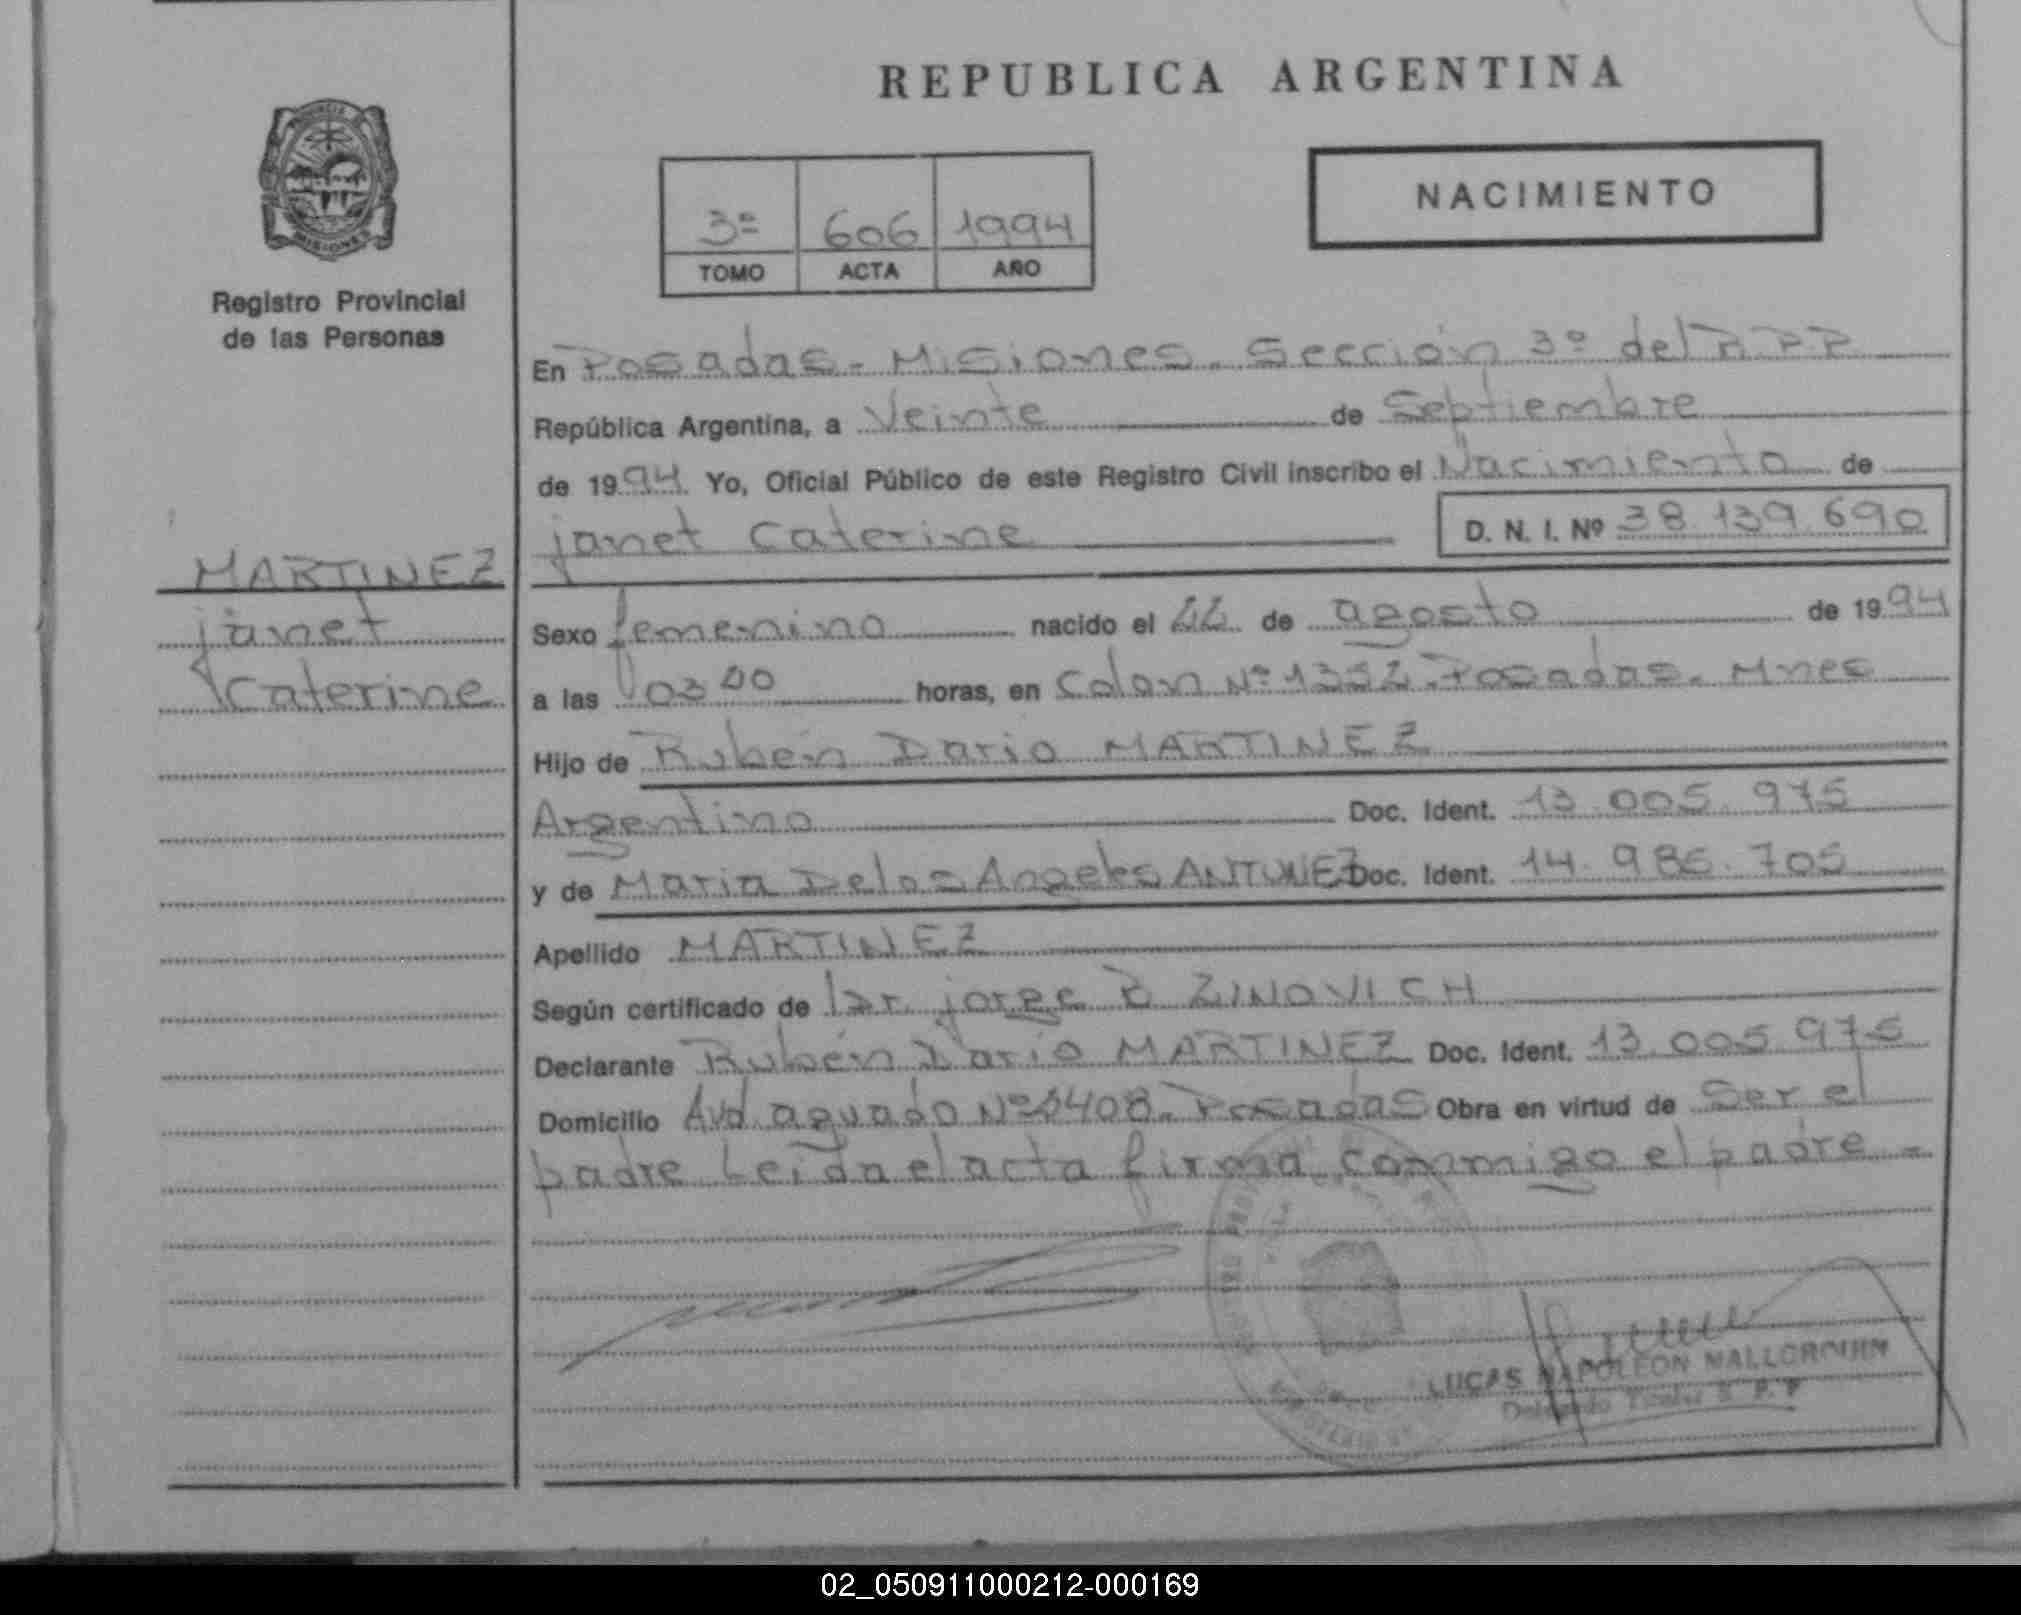 REPUBLICA ARGENTINA
NACIMIENTO
3º 606 1994
TOMO ACTA AÑO
PROVINCIA
MISIONES
Registro Provincial
de las Personas
MARTINEZ
janet
Caterine
En Posadas - Misiones. Sección 3º del R.P.P.
República Argentina, a Veinte de Septiembre
de 1994 Yo, Oficial Público de este Registro Civil inscribo el Nacimiento de
janet Caterine D. N. I. Nº 38.139.690
Sexo femenino nacido el de agosto de 1994
a las 03 00 horas, en Colon Nº 1352. Posadas. Mnes
Hijo de Rubén Dario MARTINEZ
Argentino Doc. Ident. 13.005.975
y de Maria Delos Angeles ANTUNEZ Doc. Ident. 14.986.705
Apellido MARTINEZ
Según certificado de Dr. jorge ZINOVICH
Declarante Rubén Dario MARTINEZ Doc. Ident. 13.005.975
Domicilio Avd. aguado Posadas Obra en virtud de Ser el
padre Leida el acta firma conmigo el padre -
LUCAS NAPOLEON
02_050911000212-000169